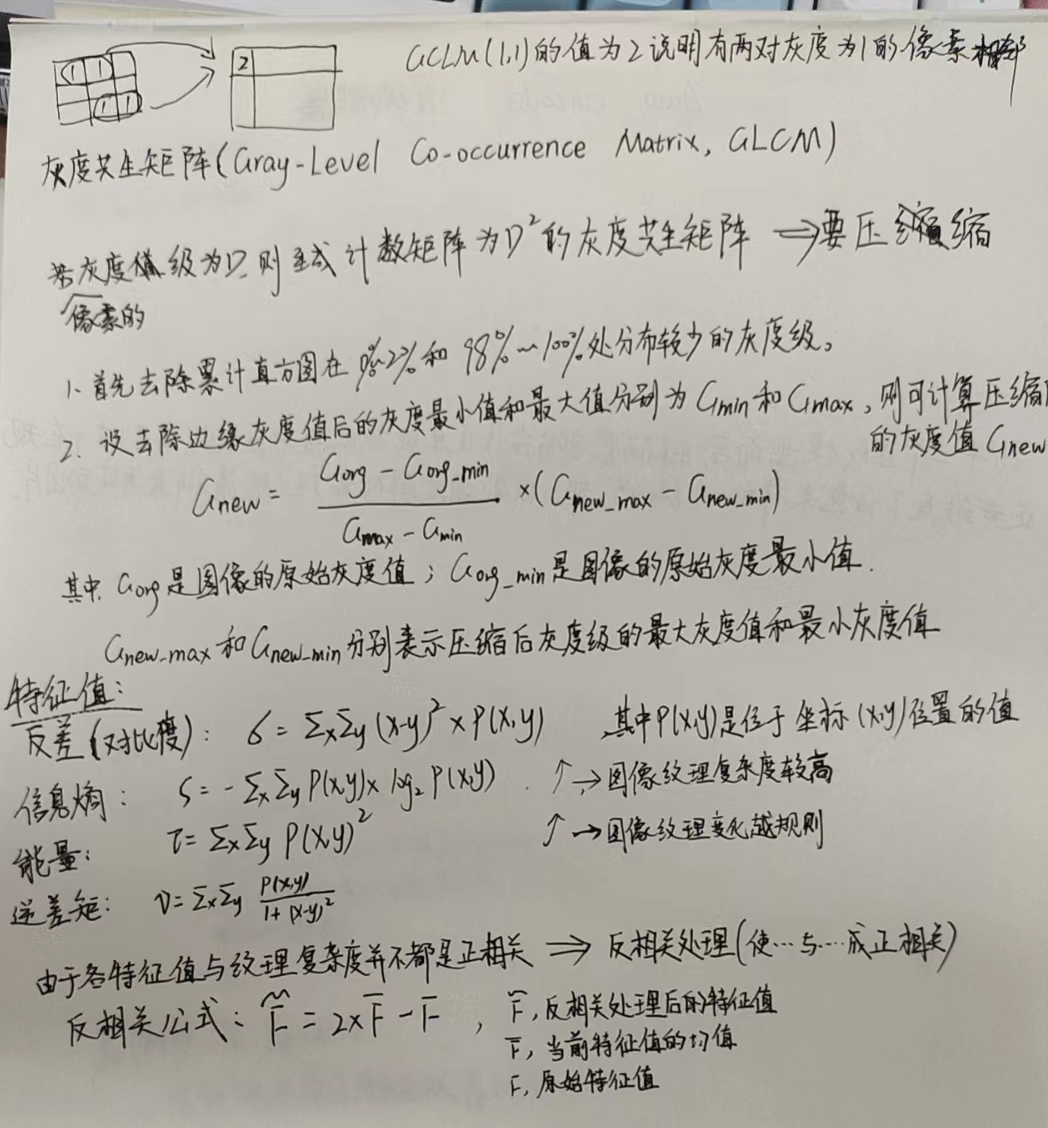 1 1
1 1
2
GCLM(1,1)的值为2说明有两对灰度为1的像素相邻
灰度共生矩阵(Gray-Level Co-occurrence Matrix, GLCM)
若灰度值级为D,则生成计数矩阵为D²的灰度共生矩阵 ⇒要压缩
像素的
1、首先去除累计直方图在0%~2%和98%~100%处分布较少的灰度级。
2、设去除边缘灰度值后的灰度最小值和最大值分别为Gmin和Gmax,则可计算压缩
的灰度值Gnew
Gnew = (Gorg − Gorg_min)/(Gmax − Gmin) ×(Gnew_max − Gnew_min)
其中,Gorg是图像的原始灰度值;Gorg_min是图像的原始灰度最小值.
Gnew_max和Gnew_min分别表示压缩后灰度级的最大灰度值和最小灰度值
特征值:
反差(对比度): δ = ΣxΣy (x-y)² × P(x,y) ,其中P(x,y)是位于坐标(x,y)位置的值
信息熵: S = -ΣxΣy P(x,y) × log₂ P(x,y) . ↑→图像纹理复杂度较高
能量: τ = ΣxΣy P(x,y)² ↑→图像纹理变化越规则
逆差矩: ν = ΣxΣy P(x,y)/(1+(x-y)²)
由于各特征值与纹理复杂度并不都是正相关 ⇒ 反相关处理(使…与…成正相关)
反相关公式: F̃ = 2×F̄ − F , F̃,反相关处理后的特征值
F̄,当前特征值的均值
F,原始特征值